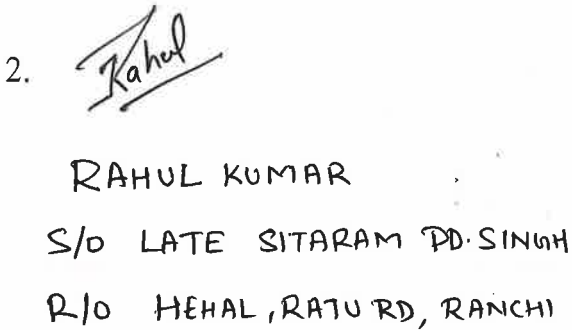 2. Rahul
RAHUL KUMAR
S/O LATE SITARAM PD. SINGH
R/O HEHAL, RATU RD, RANCHI